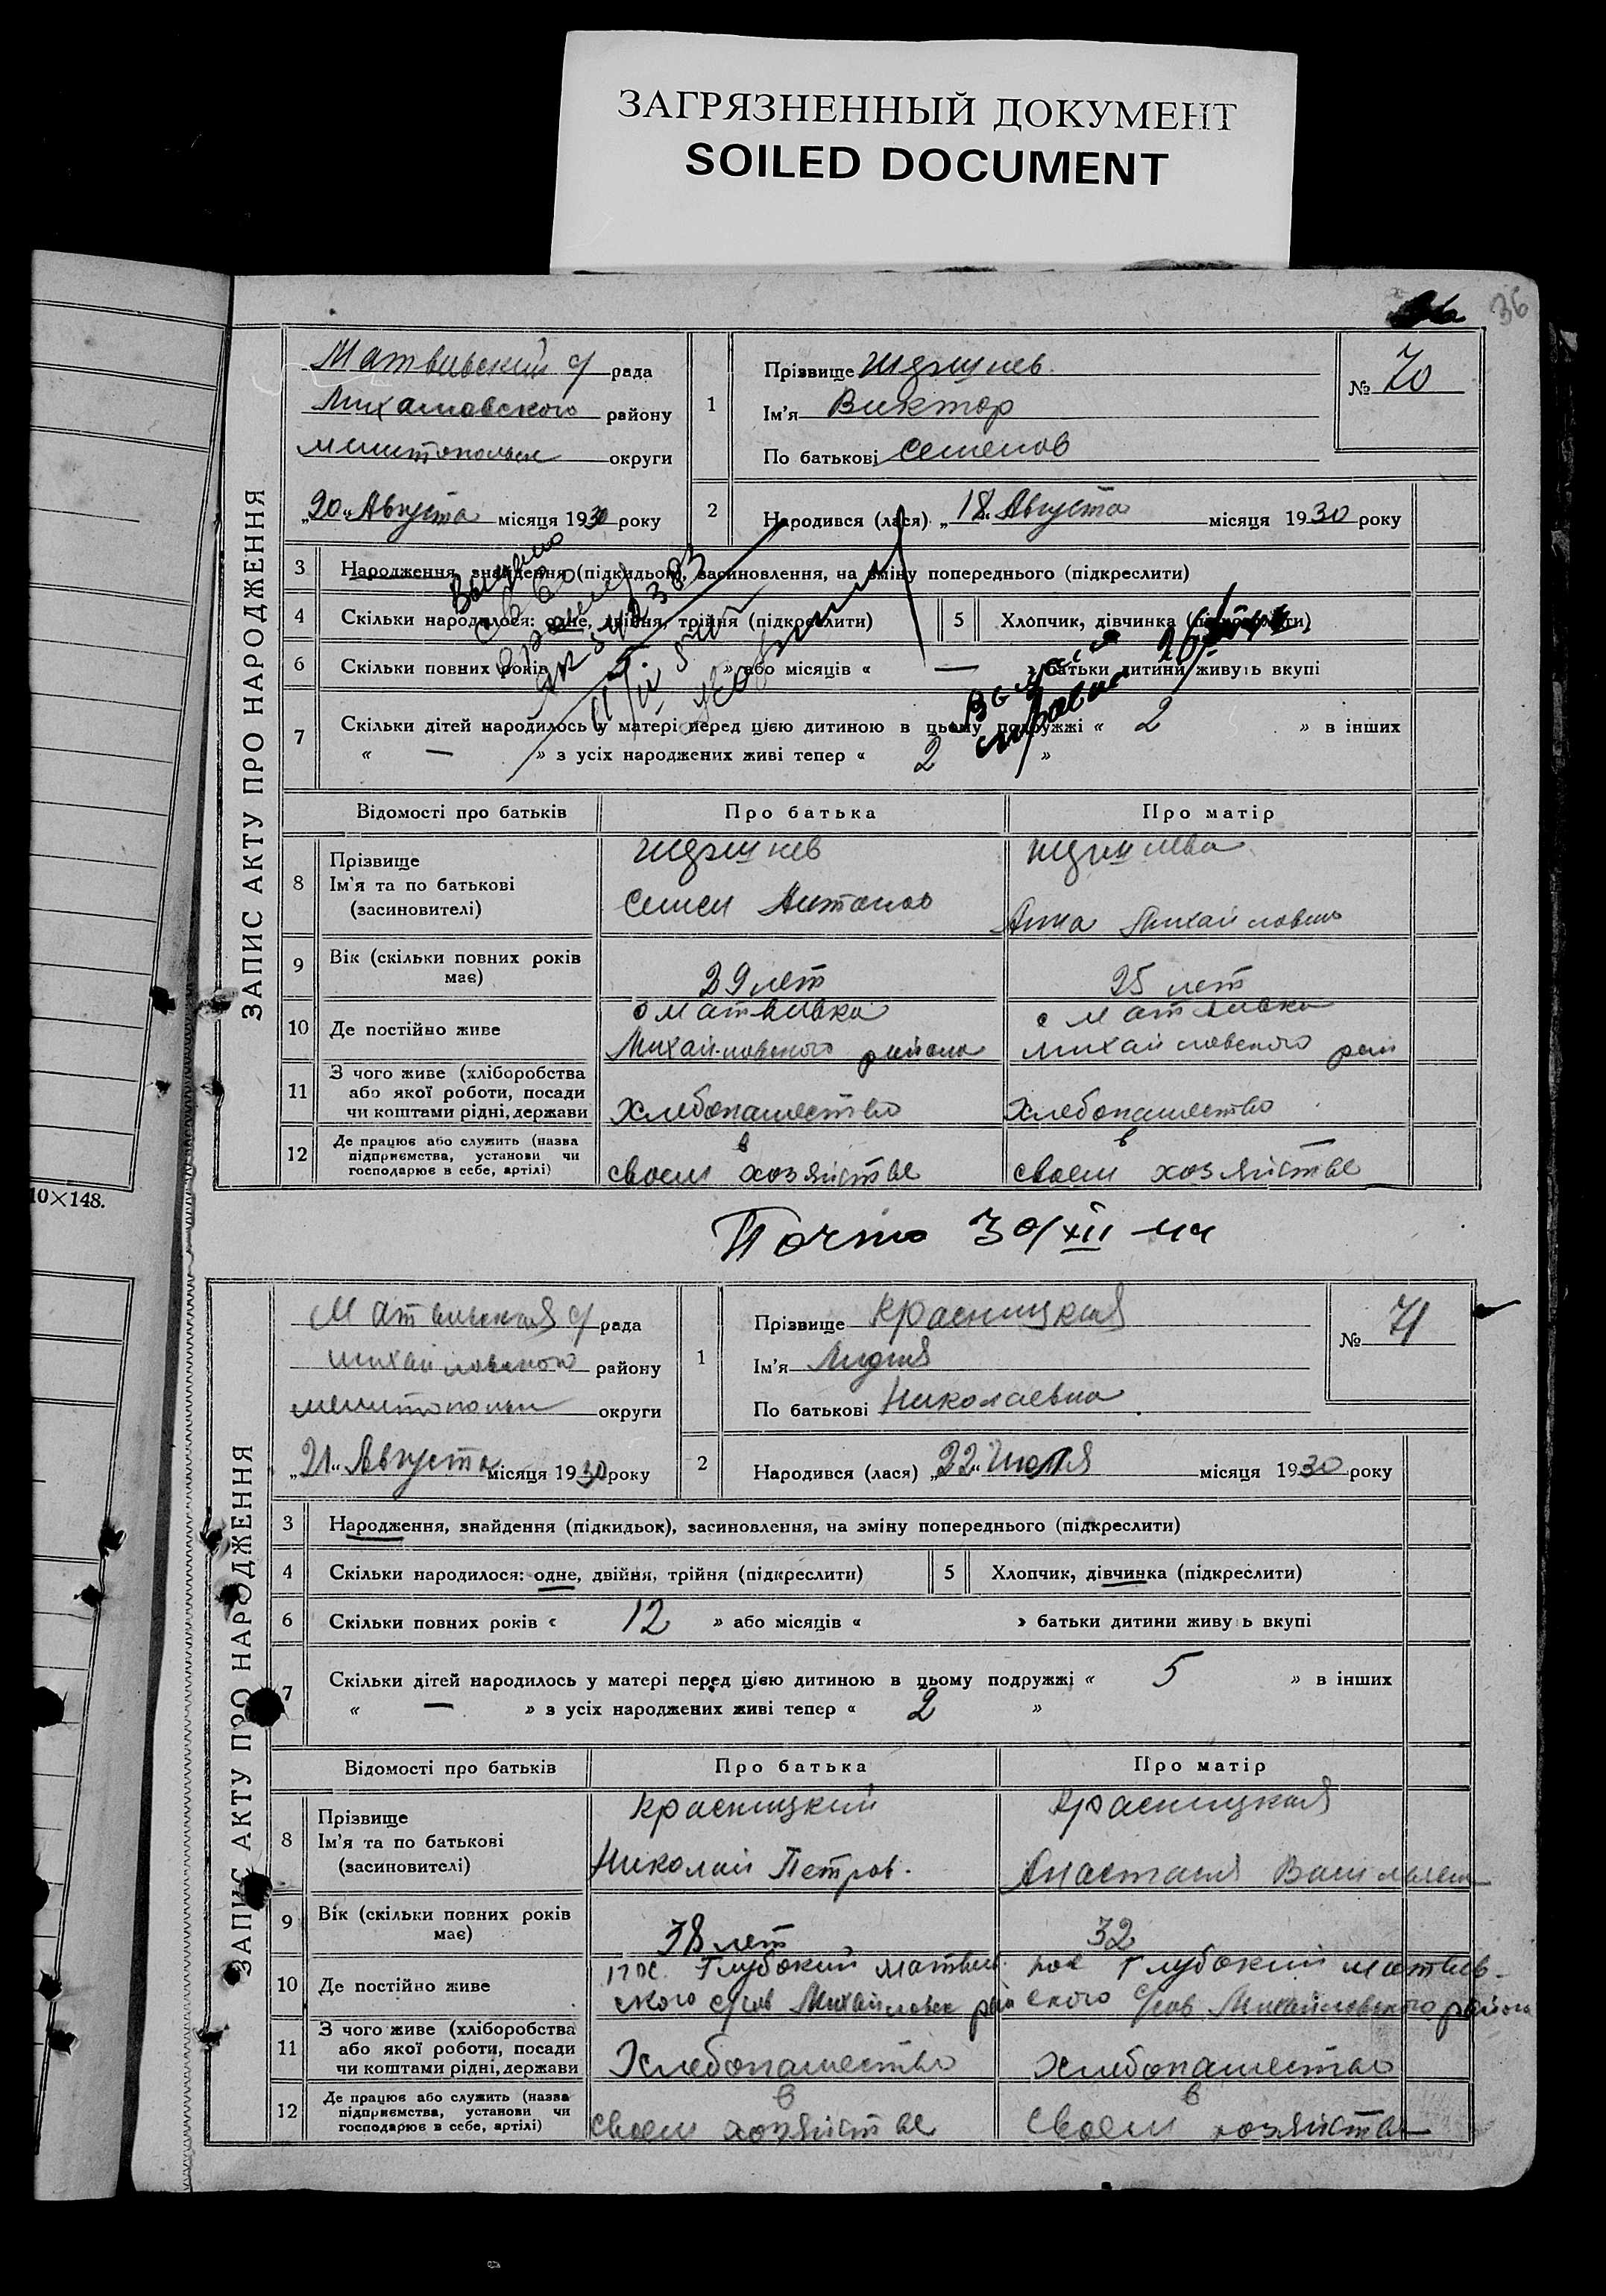 ЗАГРЯЗНЕННЫЙ ДОКУМЕНТ
SOILED DOCUMENT
36
10×148.
ЗАПИС АКТУ ПРО НАРОДЖЕННЯ
Матвивский с/ рада
Михайловского району
округи
„20“ Августа місяця 1930 року
1
Прізвище
Ім'я Виктор
По батькові Семенов
№ 70
2
Народився (лася) „18“ Августа місяця 1930 року
3 Народження, знайдення (підкидьок), засиновлення, на зміну попереднього (підкреслити)
4 Скільки народилося: одне, двійня, трійня (підкреслити)
5 Хлопчик, дівчинка (підкреслити)
6 Скільки повних років » або місяців « — » батьки дитини живуь вкупі
7 Скільки дітей народилось у матері перед цією дитиною в цьому подружжі « 2 » в інших
« — » з усіх народжених живі тепер « 2 »
Відомості про батьків Про батька Про матір
8 Прізвище
Ім'я та по батькові
(засновителі)
Семен Антонов
Анна
9 Вік (скільки повних років має) 29 лет 25 лет
10 Де постійно живе
с Матвивка
Михайловского района
с Матвивка
Михайловского рай
11 З чого живе (хліборобства
або якої роботи, посади
чи коштами рідні, держави
Хлебопашество Хлебопашество
12 Де працює або служить (назва
підприємства, установи чи
господарює в себе, артілі)
в своем хозяйстве
в своем хозяйстве
30/XII
ЗАПИС АКТУ ПРО НАРОДЖЕННЯ
Матвивская с/ рада
Михайловского району
округи
„21“ Августа місяця 1930 року
1
Прізвище Красницкая
Ім'я Лидия
По батькові Николаевна
№ 71
2
Народився (лася) „22“ Июля місяця 1930 року
3 Народження, знайдення (підкидьок), засиновлення, на зміну попереднього (підкреслити)
4 Скільки народилося: одне, двійня, трійня (підкреслити)
5 Хлопчик, дівчинка (підкреслити)
6 Скільки повних років « 12 » або місяців « » батьки дитини живуь вкупі
7 Скільки дітей народилось у матері перед цією дитиною в цьому подружжі « 5 » в інших
« — » з усіх народжених живі тепер « 2 »
Відомості про батьків Про батька Про матір
8 Прізвище
Ім'я та по батькові
(засиновителі)
Красницкий
Николай Петров.
Красницкая
Анастасия
9 Вік (скільки повних років має) 38 лет 32
10 Де постійно живе
пос. Глубокий Матвив
ского с/сов Михайловск рай
пос Глубокий Матвив-
ского с/сов Михайловского района
11 З чого живе (хліборобства
або якої роботи, посади
чи коштами рідні, держави
Хлебопашество Хлебопашество
12 Де працює або служить (назва
підприємства, установи чи
господарює в себе, артілі)
в своем хозяйстве
в своем хозяйстве